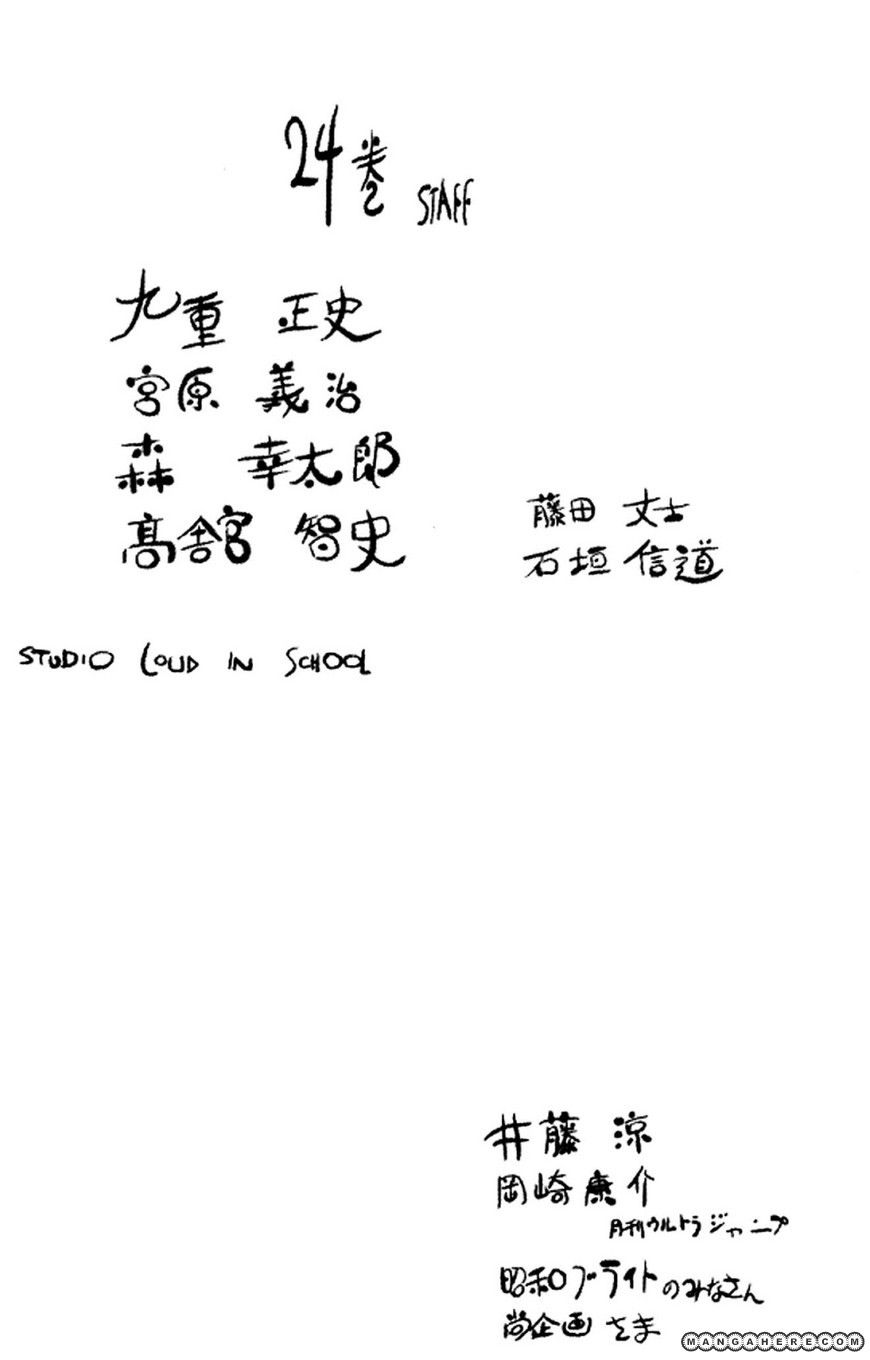 24巻 STAFF
九重 正史
宮原 義治
森 幸太郎
高舎宮 智史
藤田 丈士
石垣 信道
STUDIO LOUD IN SCHOOL
井藤 涼
岡崎 康介
月刊ウルトラジャンプ
昭和ブライトのみなさん
尚企画 さま
MANGAHERE.COM